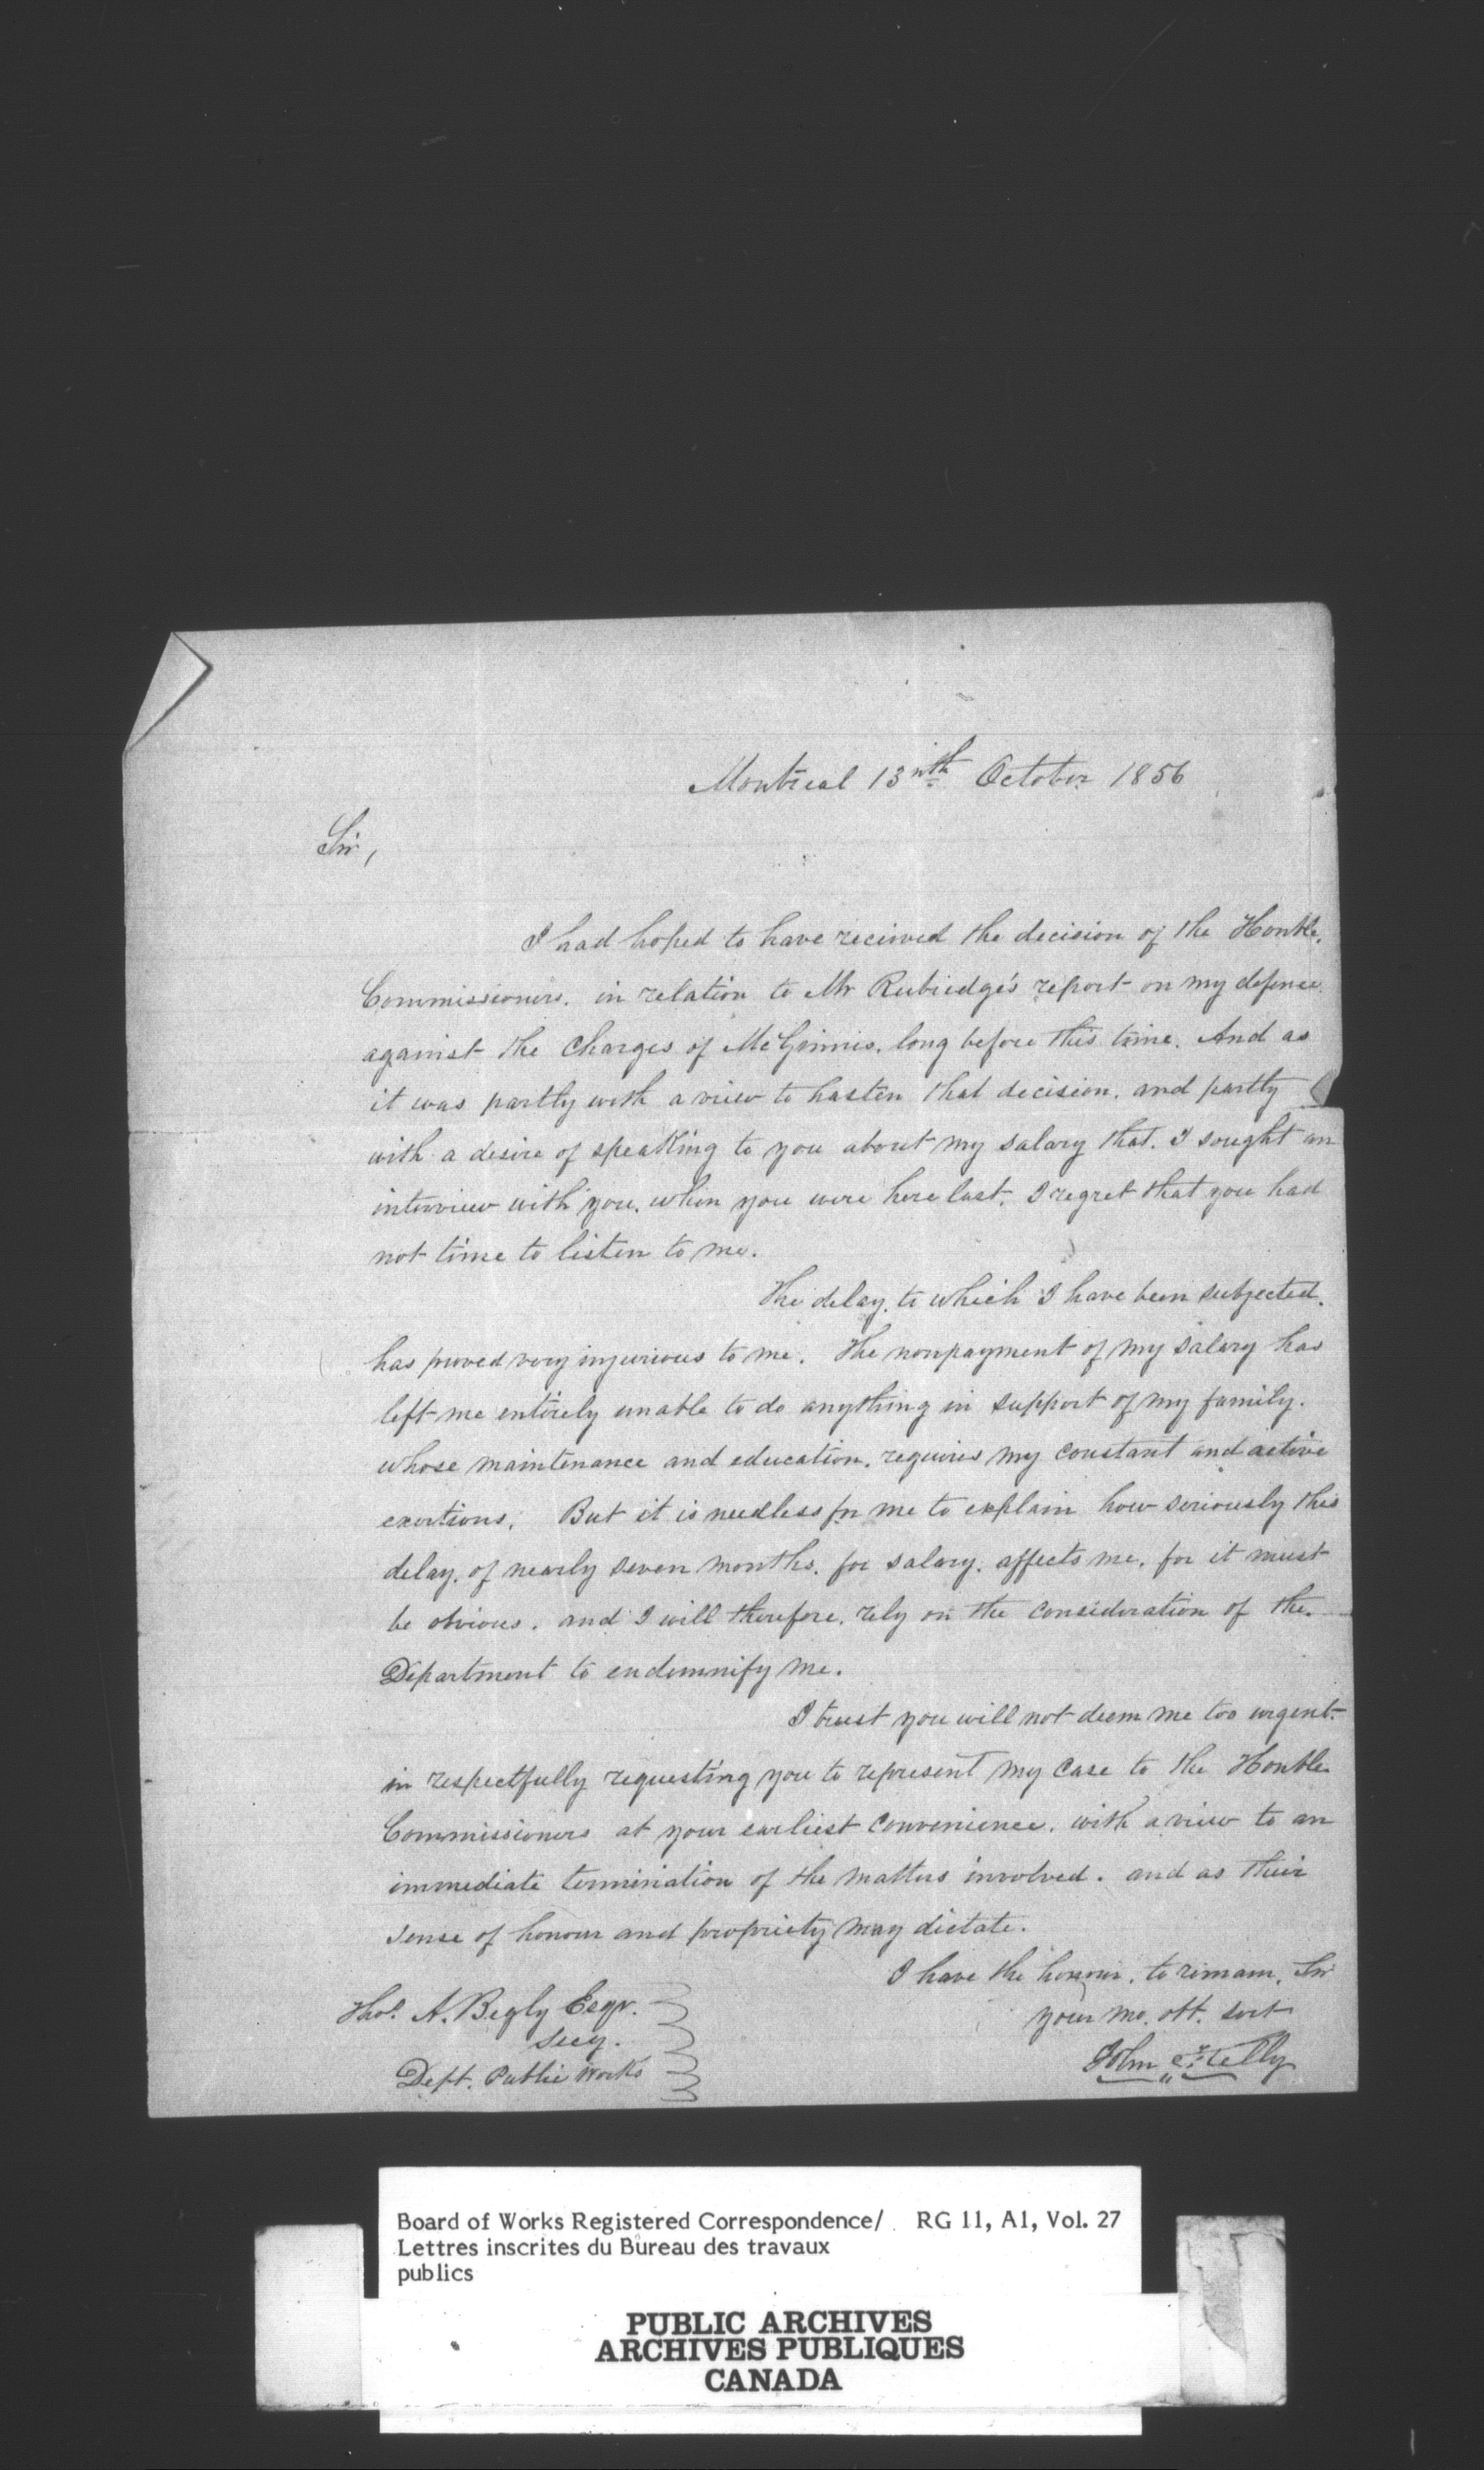 Montreal 13nth October 1856
Sir,
I had hoped to have recieved the decision of the Honble.
Commissioners. in relation to Mr Rubiedge's report on my defence
against the Charges of McGinnis. long before this time. And as
it was partly with a view to hasten that decision. and partly
with a desire of speakking to you about my salary that. I sought an
interview with you. when you were here last. I regret that you had
not time to listen to me.
The delay. to which I have been subjected.
has proved very injurious to me. The nonpayment of my salary has
left me entirely unable to do anything in support of my family.
whose maintenance and education. requires my constant and active
exertions. But it is needless for me to explain how seriously this
delay. of nearly seven months. for salary. affects me. for it must
be obvious. and I will therefore. rely on the consideration of the
Department to endemnify me.
I trust you will not deem me too urgent
in respectfully requesting you to represent my case to the Honble
Commissioners at your earliest convenience. with a view to an
immediate termination of the matters involved. and as their
sense of honour and propriety may dictate.
I have the honour. to remain. Sir
your mo. obt. svt
John Kelly
Thos. A. Begly Esqr.
Secy.
Dept. Public Works
Board of Works Registered Correspondence/ RG 11, A1, Vol. 27
Lettres inscrites du Bureau des travaux
publics
PUBLIC ARCHIVES
ARCHIVES PUBLIQUES
CANADA